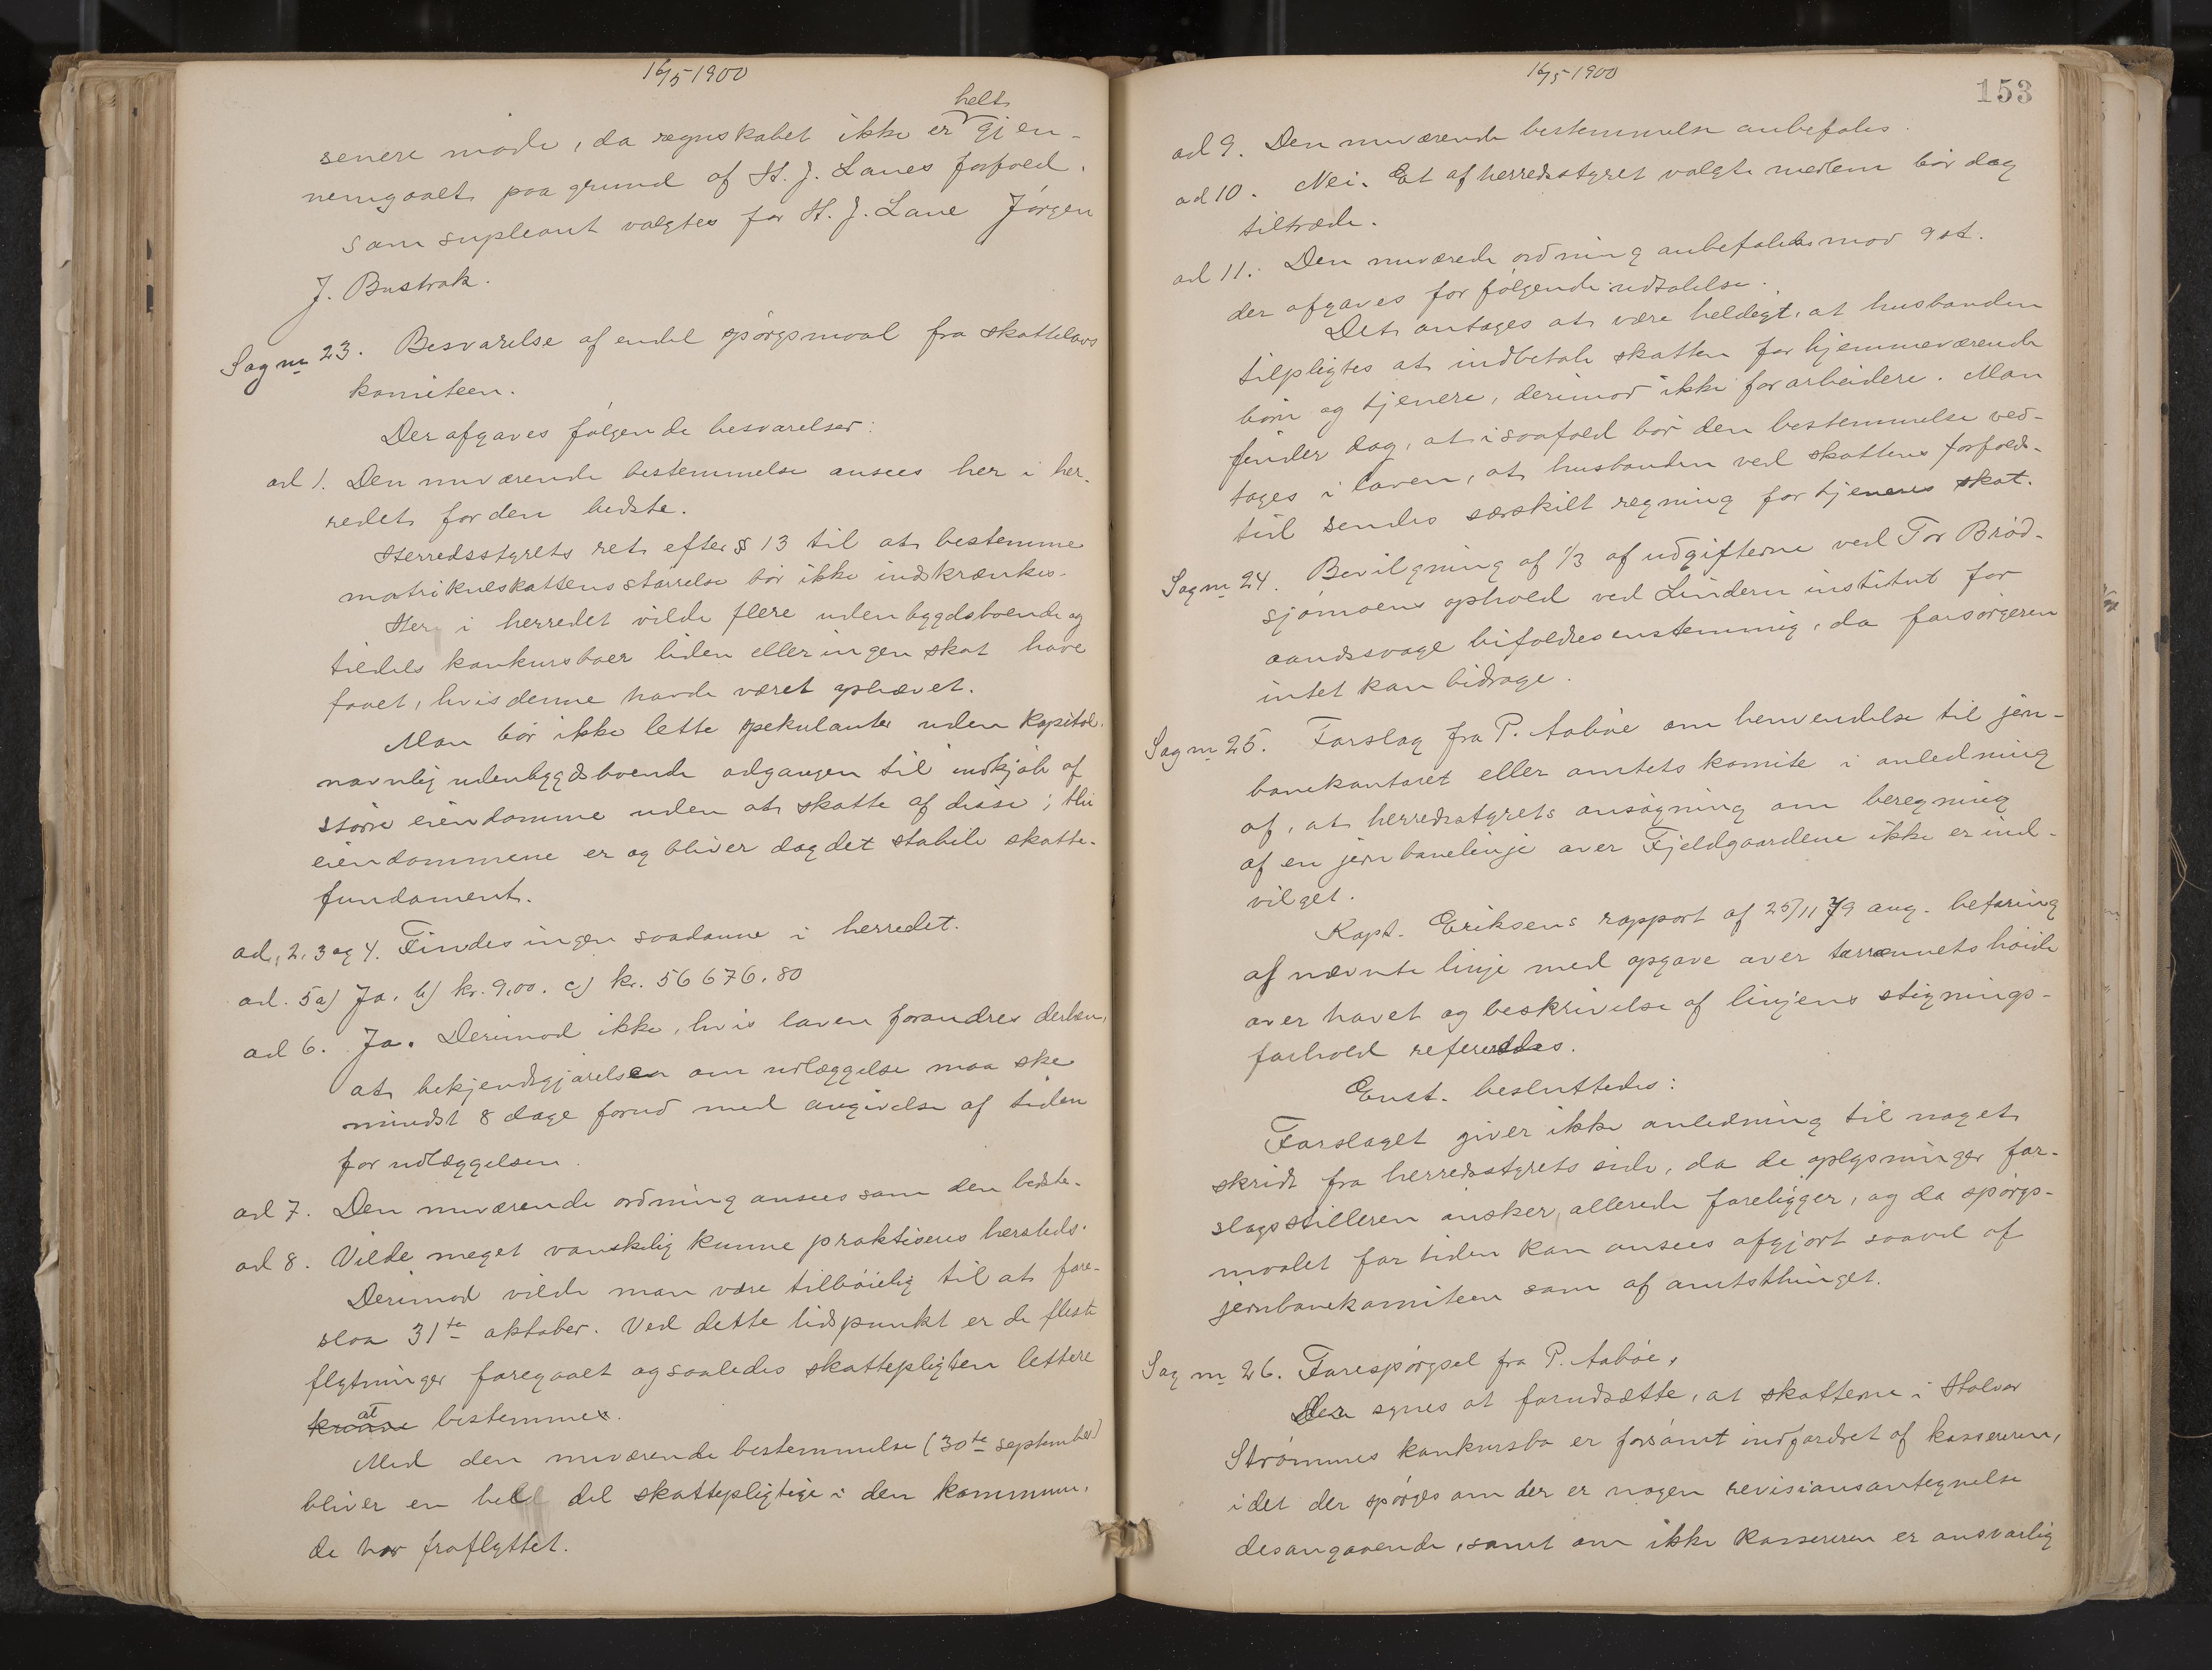 16/5 1900
helt
senere møde, da regnskabet ikke er gjen-
nemgaaet paa grund af H. J. Lanes forfald.
Som supleant valgtes for H. J. Lane Jørgen
J. Bustrak.
Sag nr 23. Besvarelse af endel spørgsmaal fra skattelovs
komiteen.
Der afgaves følgende besvarelser:
ad 1. Den nuværende bestemmelse ansees her i her-
redet for den bedste.
Herredsstyrets ret efter § 13 til at bestemme
matrikulskattens størrelse bør ikke indskrænkes.
Her i herredet vilde flere udenbygdsboende og
tildels konkursboer liden eller ingen skat have
faaet, hvis denne havde været ophævet.
Man bør ikke lette spekulanter uden kapital,
navnlig udenbygdsboende adgangen til indkjøb af
større eiendomme uden at skatte af disse; thi
eiendommene er og bliver dog det stabile skatte-
fundament.
ad. 2, 3 og 4. Findes ingen saadanne i herredet.
ad. 5 a) Ja. b) kr. 9,00. c) kr. 56 676.80
ad 6. Ja. Derimod ikke, hvis loven forandres derhen,
at bekjendtgjørelsen om udlæggelse maa ske
mindst 8 dage forud med angivelse af tiden
for udlæggelsen.
ad 7. Den nuværende ordning ansees som den bedste.
ad 8. Vilde meget vanskelig kunne praktiseres hersteds.
Derimod vilde man være tilbøielig til at fore-
slaa 31te oktober. Ved dette tidspunkt er de fleste
flytninger foregaaet og saaledes skattepligten lettere
at
kunne bestemmes.
Med den nuværende bestemmelse (30te september)
bliver en hel del skattepligtige i den kommune,
de har fraflyttet.
16/5 1900
153
ad 9. Den nuværende bestemmelse anbefales.
ad 10. Nei. Et af herredsstyret valgte medlem bør dog
tiltræde.
ad 11. Den nuværede ordning anbefaledes mod 9 st.
der afgaves for følgende udtalelse.
Det antages at være heldigt, at husbonden
tilpligtes at indbetale skatten for hjemmeværende
børn og tjenere, derimod ikke for arbeidere. Man
finder dog, at i saafald bør den bestemmelse ved-
tages i loven, at husbonden ved skattens forfalds-
tid sendes særskilt regning for tjeneres skat.
Sag nr 24. Bevilgning af 1/3 af udgifterne ved Tor Brød-
sjømoens ophold ved Lindern institut for
aandssvage bifaldtes enstemmig, da forsørgeren
intet kan bidrage.
Sag nr 25. Forslag fra P. Aabøe om henvendelse til jern-
banekontoret eller amtets komite i anledning
af, at herredsstyrets ansøgning om beregning
af en jernbanelinje over Fjeldgaardene ikke er ind-
vilget.
Kapt. Eriksens rapport af 25/11 79 ang. befaring
af nævnte linje med opgave over tærrænnets høide
over havet og beskrivelse af linjens stignings-
forhold refereredes.
Enst. besluttedes:
Forslaget giver ikke anledning til noget
skridt fra herredsstyrets side, da de oplysninger for-
slagsstilleren ønsker, allerede foreligger, og da spørgs-
maalet for tiden kan ansees afgjort saavel af
jernbanekomiteen som af amtsthinget.
Sag nr 26. Forespørgsel fra P. Aabøe,
Den synes at forudsætte, at skatterne i Halvor
Strømmes konkursbo er forsømt indfordret af kassereren,
idet der spørges om der er nogen revisionsantegnelse
desangaaende, samt om ikke kassereren er ansvarlig